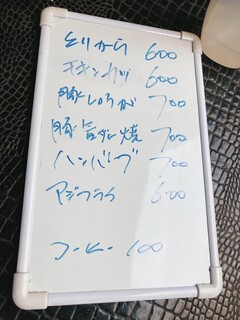 とりから 600
チキンカツ 600
豚しょうが 700
豚旨辛焼 700
ハンバーグ 700
アジフライ 600
コーヒー 100